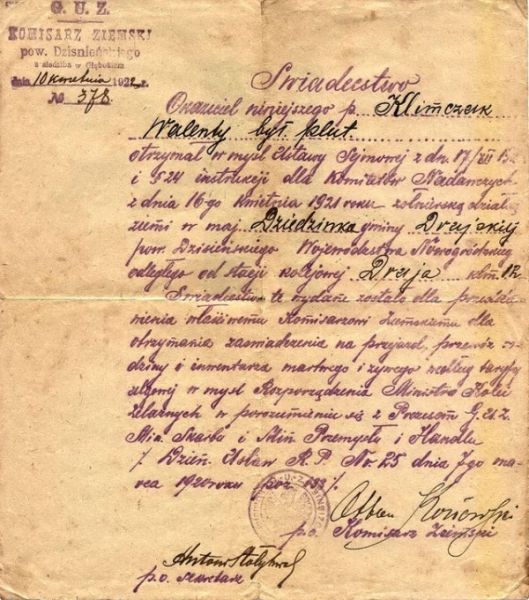 G. U. Z.
KOMISARZ ZIEMSKI
pow. Dzisnieńskiego
z siedzibą w Głębokiem
dnia 10 kwietnia 1922 r.
№ 378.
Świadectwo
Okaziciel niniejszego p. Klimczak
Walenty był. plut
otrzymał w myśl Ustawy Sejmowej z dn. 17/XII
i § 24 instrukcji dla Komitetów Nadawczych
z dnia 16-go Kwietnia 1921 roku żołnierską działkę
ziemi w maj. Dziedzinka gminy Dryjskiej
pow. Dzisieńskiego Województwa Nowogródzkiego
odległego od stacji kolejowej Dryja klm. 12
Świadectwo te wydane zostało dla przedsta-
wienia właściwemu Komisarzowi Ziemskiemu dla
otrzymania zaświadczenia na przejazd, przewóz ro-
dziny i inwentarza martwego i żywego według taryfy
ulgowej w myśl Rozporządzenia Ministra Kolei
Żelaznych w porozumieniu się z Prezesem G.U.Z.
Min. Skarbu i Min. Przemysłu i Handlu
/. Dzien. Ustaw R.P. Nr. 25 dnia 7-go mar-
ca 1920 roku poz. 153 /.
p.o. Komisarz Ziemski
Antoni
p.o. sekretarz